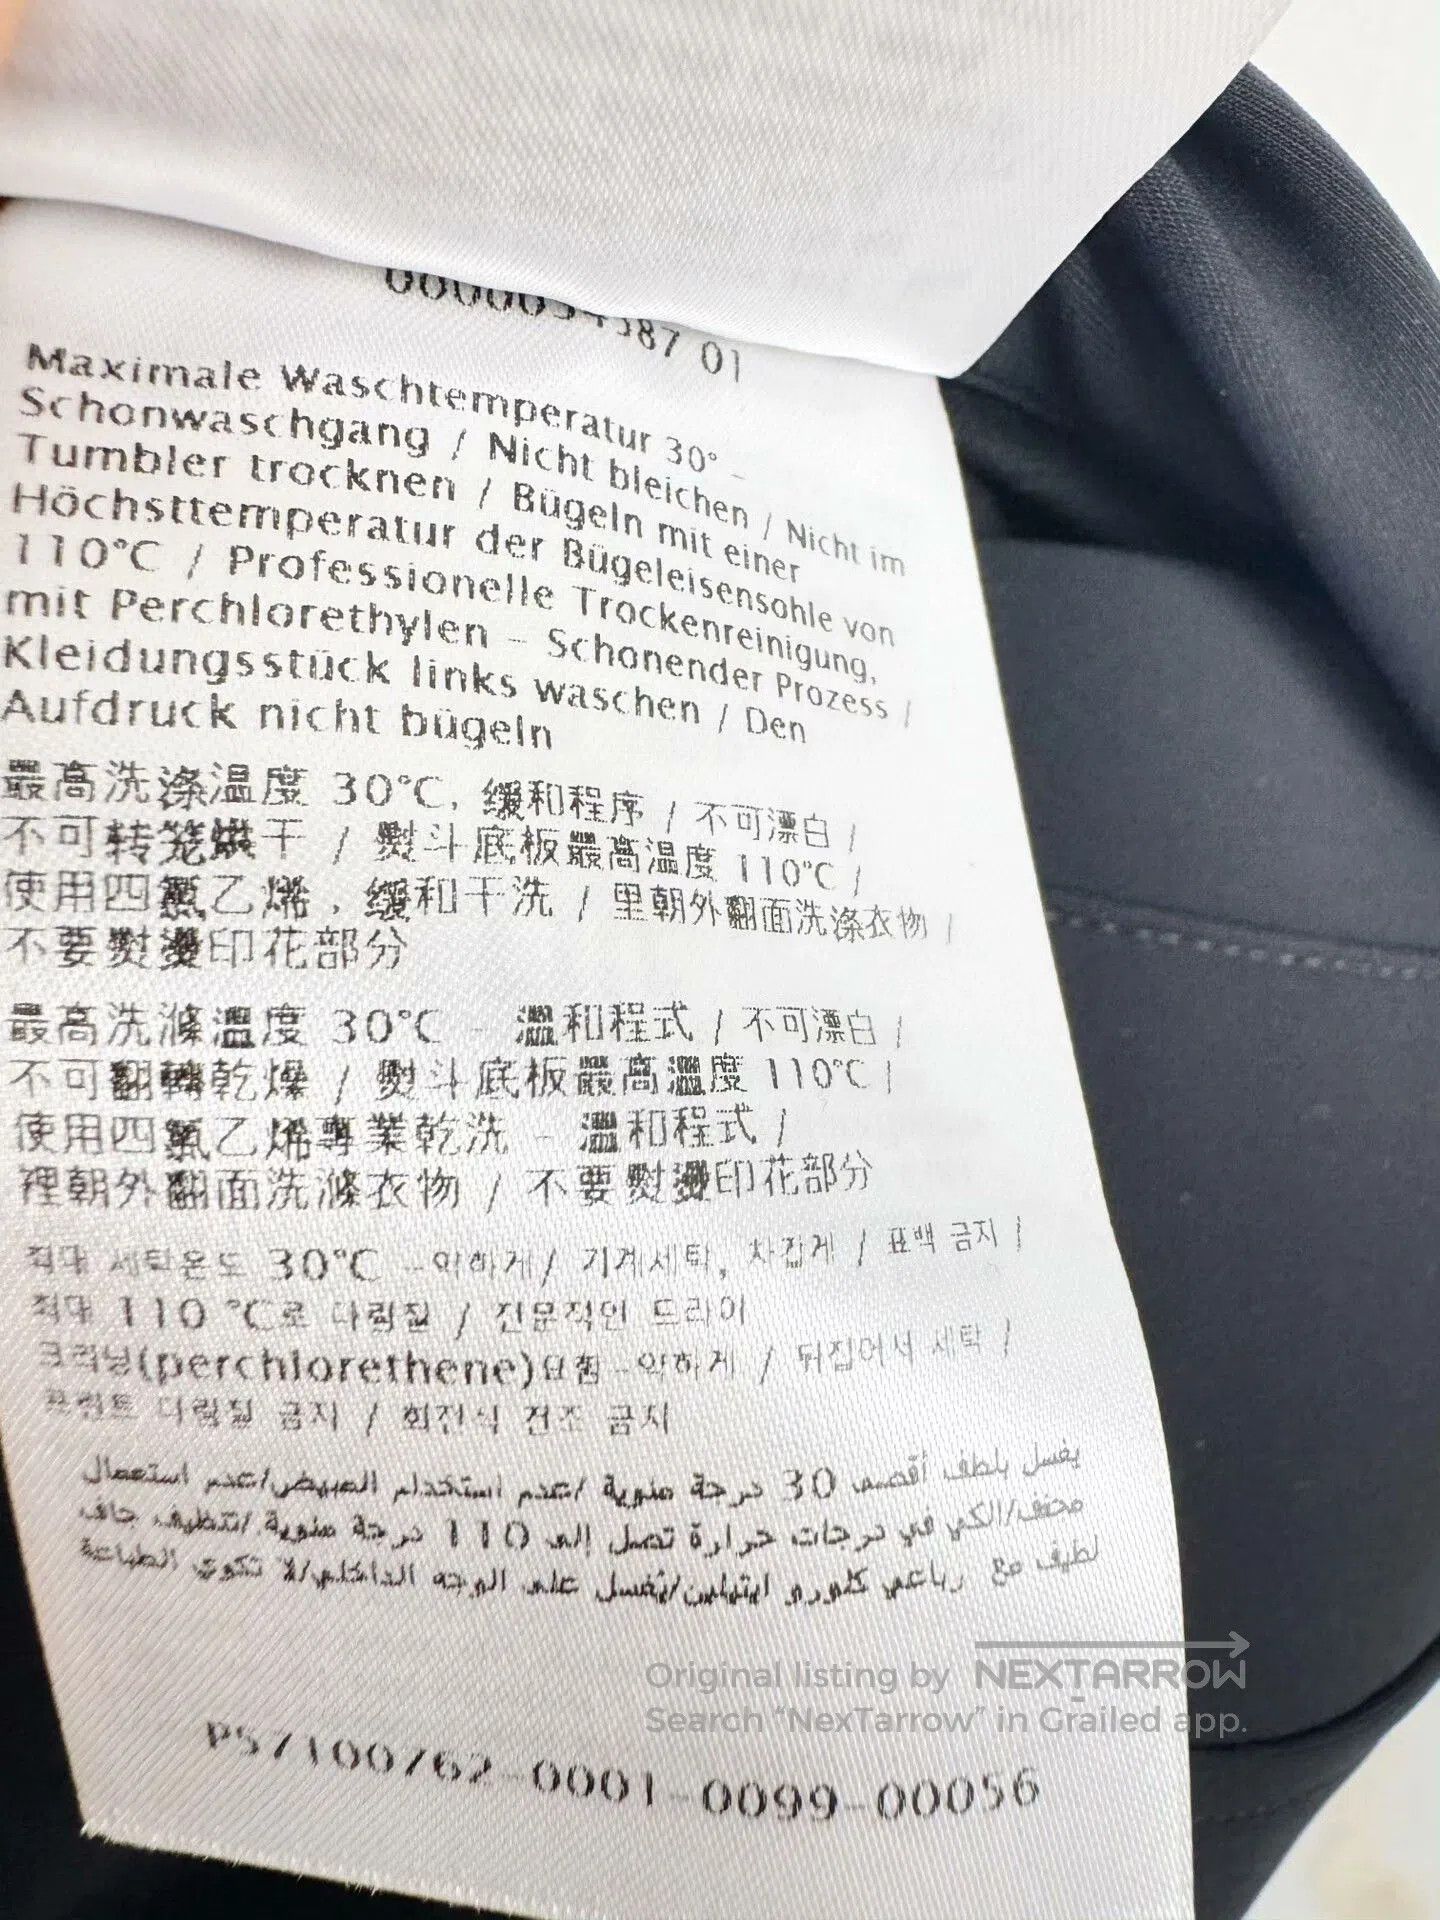 01
Maximale Waschtemperatur 30° –
Schonwaschgang / Nicht bleichen / Nicht im
Tumbler trocknen / Bügeln mit einer
Höchsttemperatur der Bügeleisensohle von
110°C / Professionelle Trockenreinigung,
mit Perchlorethylen – Schonender Prozess /
Kleidungsstück links waschen / Den
Aufdruck nicht bügeln
最高洗涤温度 30°C, 缓和程序 / 不可漂白 /
不可转笼烘干 / 熨斗底板最高温度 110°C /
使用四氯乙烯，缓和干洗 / 里朝外翻面洗涤衣物 /
不要熨烫印花部分
最高洗滌溫度 30°C - 溫和程式 / 不可漂白 /
不可翻轉乾燥 / 熨斗底板最高溫度 110°C /
使用四氯乙烯專業乾洗 - 溫和程式 /
裡朝外翻面洗滌衣物 / 不要熨燙印花部分
최대 세탁온도 30°C –약하게/ 기계세탁, 차갑게 / 표백 금지 /
최대 110 °C로 다림질 / 전문적인 드라이
크리닝(perchlorethene)요함–약하게 / 뒤집어서 세탁 /
프린트 다림질 금지 / 회전식 건조 금지
يغسل بلطف أقصى 30 درجة مئوية /عدم استخدام المبيض/عدم استعمال
مجفف/الكي في درجات حرارة تصل إلى 110 درجة مئوية /تنظيف جاف
لطيف مع رباعي كلورو ايثيلين/يغسل على الوجه الداخلي/لا تكوي الطباعة
Original listing by NEXTARROW
Search “NexTarrow” in Grailed app.
P57100762-0001-0099-00056